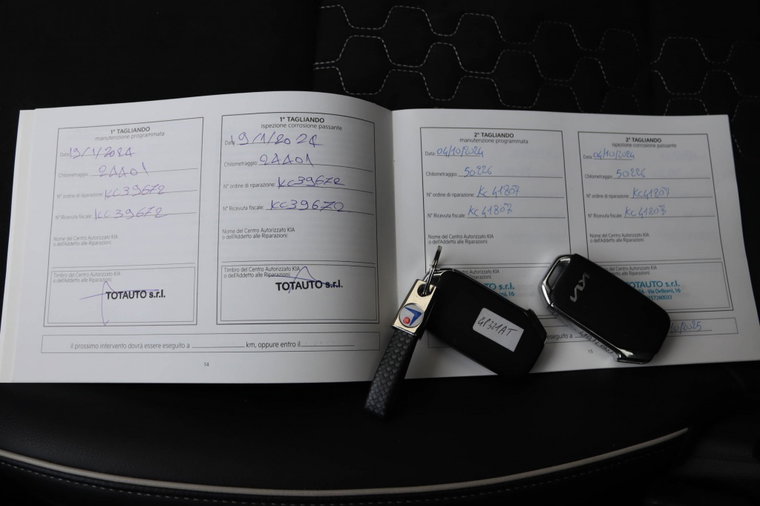 1° TAGLIANDO
manutenzione programmata
Data 19/1/2024
Chilometraggio: 24401
N° ordine di riparazione: KC39672
N° Ricevuta fiscale: KC39672
Nome del Centro Autorizzato KIA
o dell'Addetto alle Riparazioni:
Timbro del Centro Autorizzato KIA
o dell'Addetto alle Riparazioni:
TOTAUTO s.r.l.
1° TAGLIANDO
ispezione corrosione passante
Data 19/1/2024
Chilometraggio: 24401
N° ordine di riparazione: KC39672
N° Ricevuta fiscale: KC39672
Nome del Centro Autorizzato KIA
o dell'Addetto alle Riparazioni:
Timbro del Centro Autorizzato KIA
o dell'Addetto alle Riparazioni:
TOTAUTO s.r.l.
il prossimo intervento dovrà essere eseguito a km, oppure entro il
14
2° TAGLIANDO
manutenzione programmata
Data 04/10/2024
Chilometraggio: 50226
N° ordine di riparazione: KC41807
N° Ricevuta fiscale: KC41807
Nome del Centro Autorizzato KIA
o dell'Addetto alle Riparazioni:
Centro Autorizzato KIA
TOTAUTO s.r.l.
2° TAGLIANDO
ispezione corrosione passante
Data 04/10/2024
Chilometraggio: 50226
N° ordine di riparazione: KC41807
N° Ricevuta fiscale: KC41807
Nome del Centro Autorizzato KIA
o dell'Addetto alle Riparazioni:
Timbro del Centro Autorizzato KIA
15
KIA